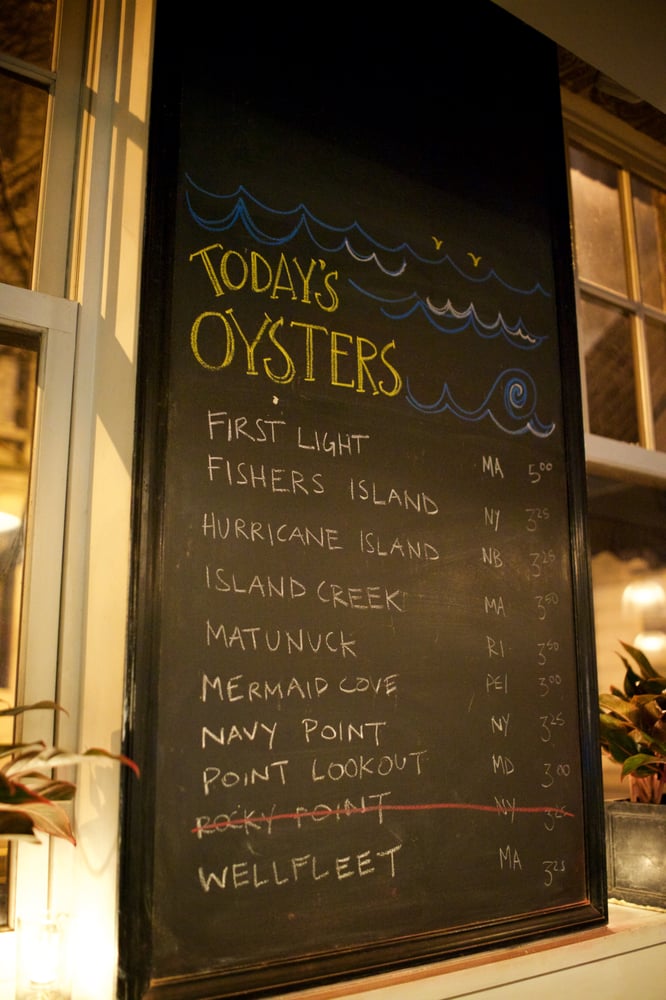 TODAY'S
OYSTERS
FIRST LIGHT MA 5.00
FISHERS ISLAND NY 3.25
HURRICANE ISLAND NB 3.25
ISLAND CREEK MA 3.50
MATUNUCK RI 3.50
MERMAID COVE PEI 3.00
NAVY POINT NY 3.25
POINT LOOKOUT MD 3.00
ROCKY POINT NY 3.25
WELLFLEET MA 3.25